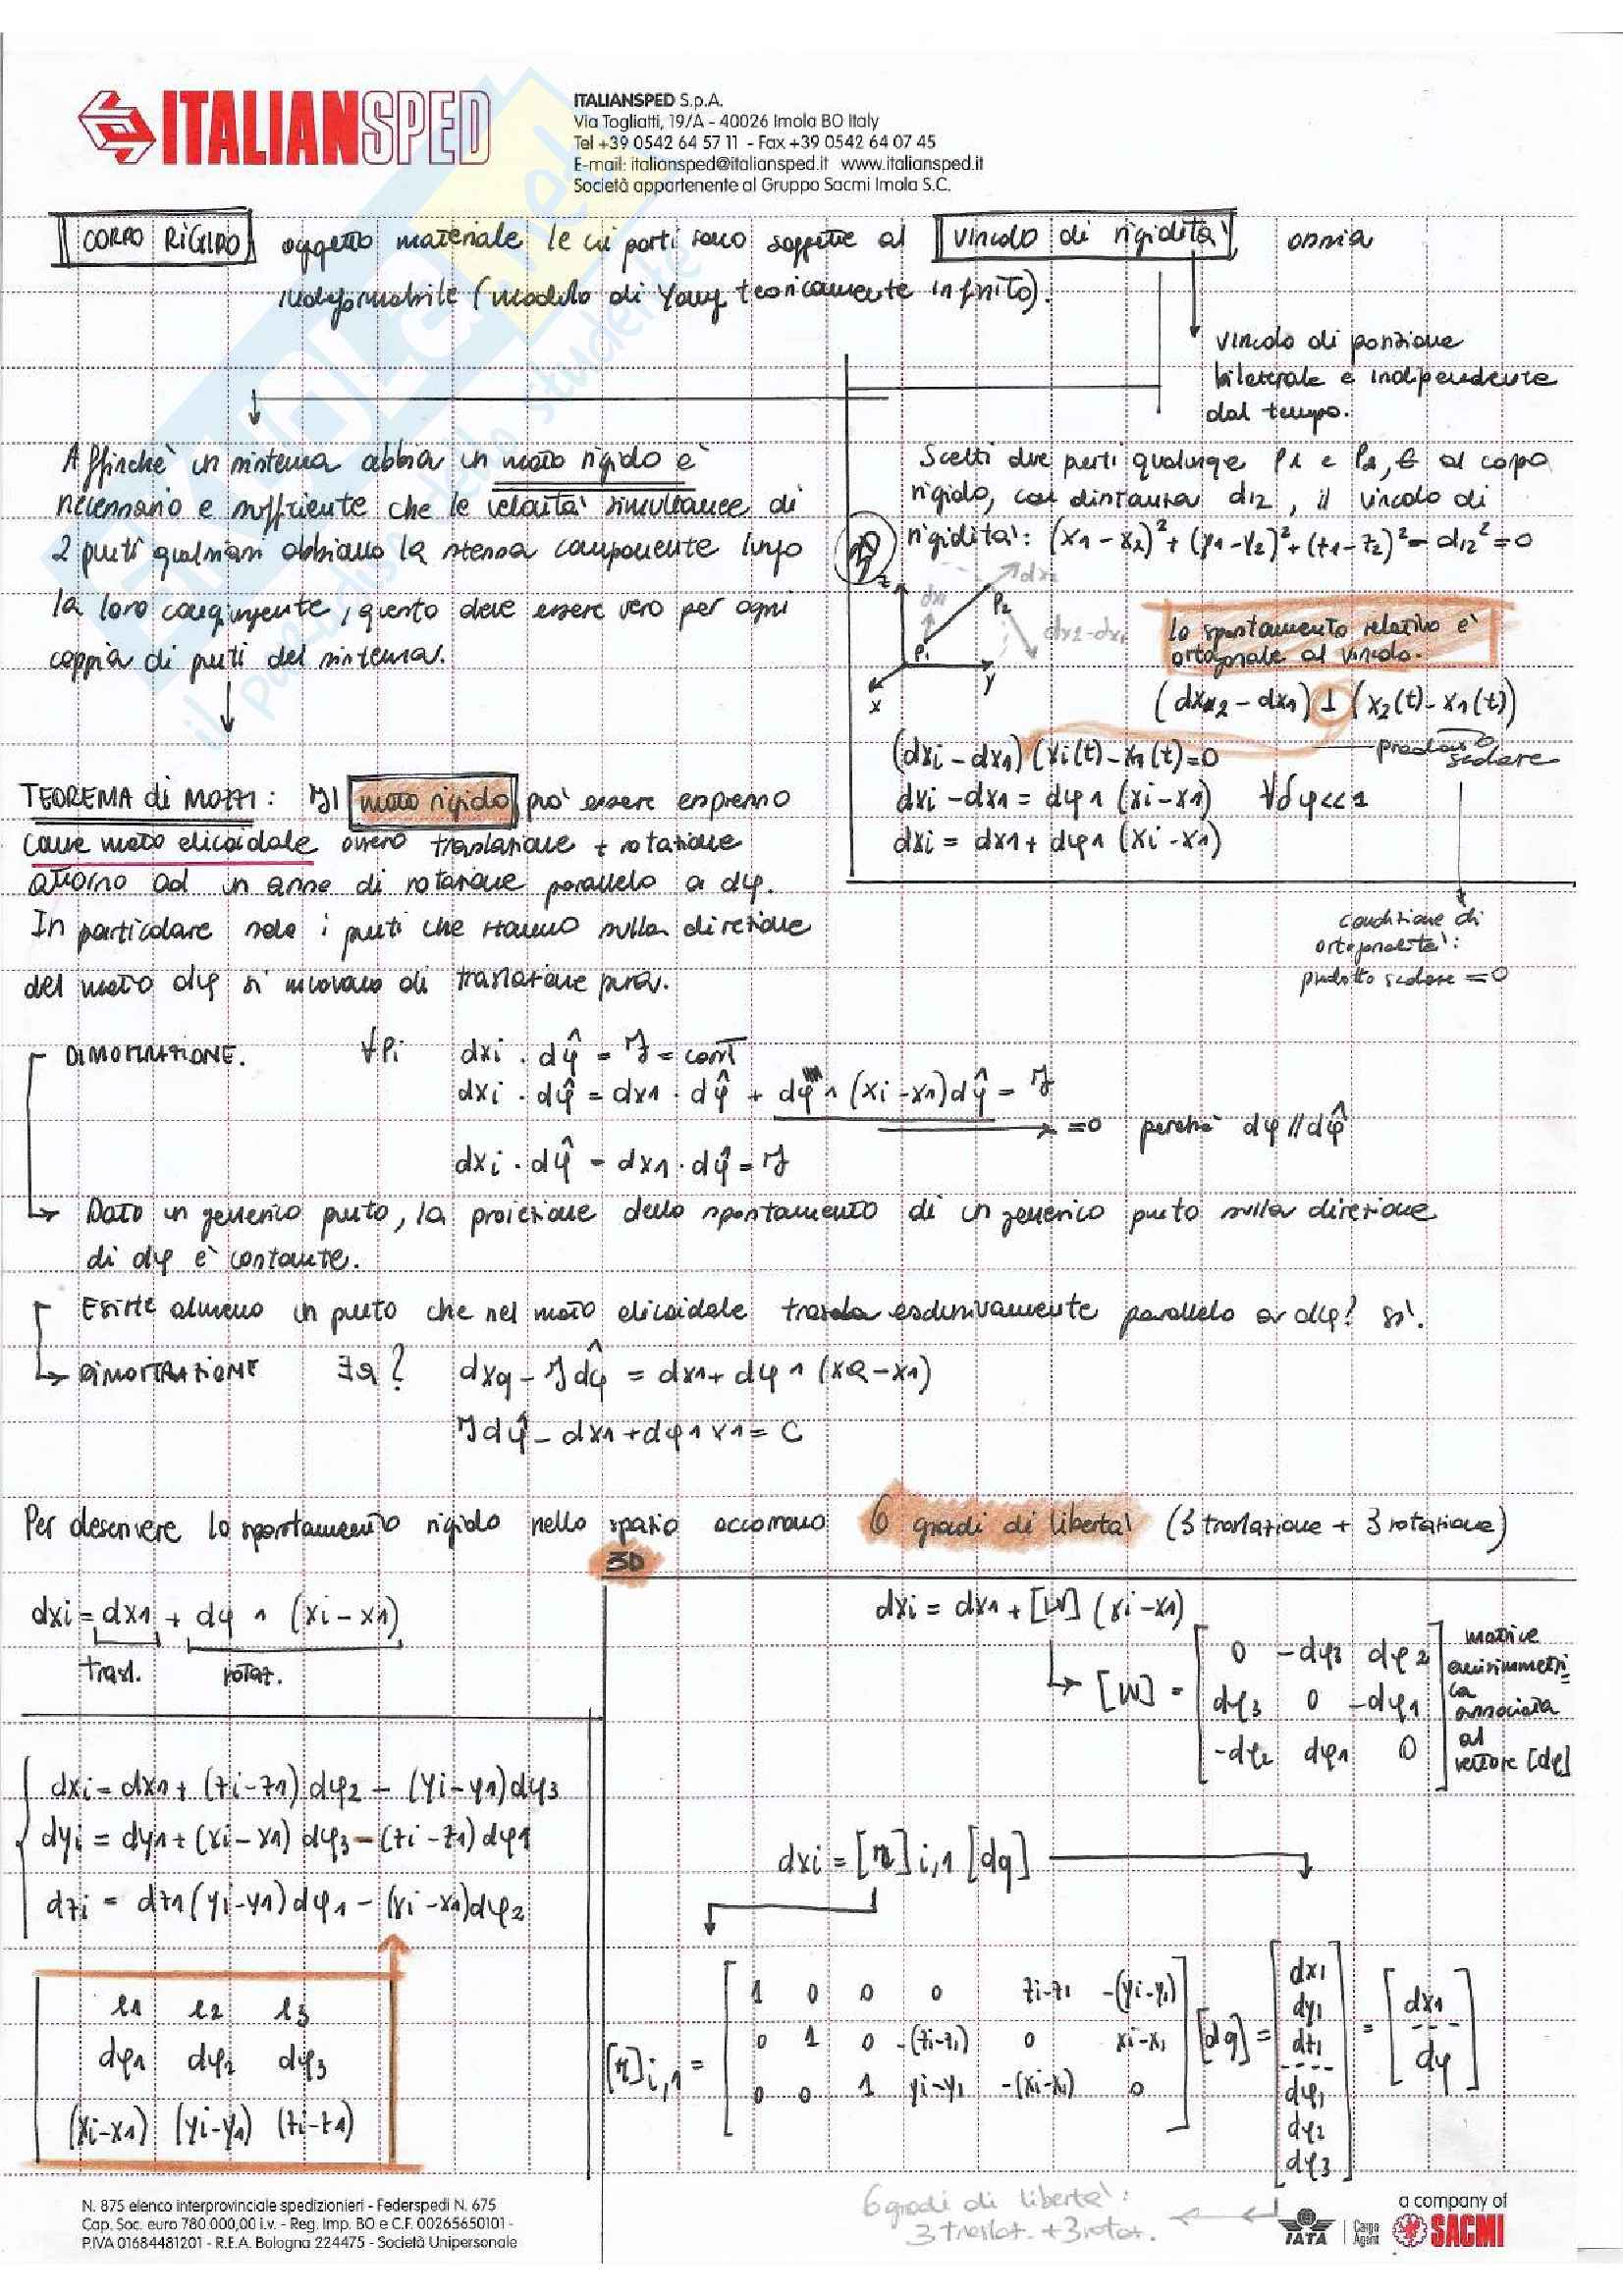 ITALIANSPED
ITALIANSPED S.p.A.
Via Togliatti, 19/A - 40026 Imola BO Italy
Tel +39 0542 64 57 11 - Fax +39 0542 64 07 45
E-mail: italiansped@italiansped.it www.italiansped.it
Società appartenente al Gruppo Sacmi Imola S.C.
CORPO RIGIDO oggetto materiale le cui parti sono soggette al vincolo di rigidità ossia
indeformabile (modulo di Young teoricamente infinito).
vincolo di posizione
bilaterale e indipendente
dal tempo.
Affinchè un sistema abbia un moto rigido è
necessario e sufficiente che le velocità simultanee di
2 punti qualsiasi abbiano la stessa componente lungo
la loro congiungente, questo deve essere vero per ogni
coppia di punti del sistema.
Scelti due punti qualunque P1 e P2, ∈ al corpo
rigido, con distanza d12, il vincolo di
rigidità: (x1-x2)²+(y1-y2)²+(z1-z2)²-d12²=0
3D
z
dx1
P1
P2
dx2
dx2-dx1
x
y
lo spostamento relativo è
ortogonale al vincolo.
(dx2-dx1) ⊥ (x2(t)-x1(t))
(dxi-dx1)(xi(t)-x1(t)=0
prodotto scalare
dxi-dx1 = dφ∧(xi-x1) ∀dφ<<1
dxi = dx1+dφ∧(xi-x1)
condizione di
ortogonalità:
prodotto scalare =0
TEOREMA di MOZZI: Il moto rigido può essere espresso
come moto elicoidale ovvero traslazione + rotazione
attorno ad un asse di rotazione parallelo a dφ.
In particolare solo i punti che stanno sulla direzione
del moto dφ si muovono di traslazione pura.
DIMOSTRAZIONE. ∀Pi dxi · dφ̂ = J = cost
dxi · dφ̂ = dx1 · dφ̂ + dφ∧(xi-x1)dφ̂ = J
=0 perchè dφ // dφ̂
dxi · dφ̂ = dx1 · dφ̂ = J
Dato un generico punto, la proiezione dello spostamento di un generico punto sulla direzione
di dφ è costante.
Esiste almeno un punto che nel moto elicoidale trasla esclusivamente parallelo a dφ? sì.
DIMOSTRAZIONE ∃Q? dxq = J dφ̂ = dx1+dφ∧(xQ-x1)
J dφ̂ - dx1+dφ∧x1 = C
Per descrivere lo spostamento rigido nello spazio occorrono 6 gradi di libertà (3 traslazione + 3 rotazione)
3D
dxi = dx1 + dφ ∧ (xi-x1)
trasl. rotaz.
dxi = dx1 + [W] (xi-x1)
[W] =
0 -dφ3 dφ2
dφ3 0 -dφ1
-dφ2 dφ1 0
matrice
antisimmetri-
ca
associata
al
vettore [dφ]
dxi = dx1 + (zi-z1) dφ2 - (yi-y1) dφ3
dyi = dy1 + (xi-x1) dφ3 - (zi-z1) dφ1
dzi = dz1 (yi-y1) dφ1 - (xi-x1) dφ2
l1 l2 l3
dφ1 dφ2 dφ3
(xi-x1) (yi-y1) (zi-z1)
dxi = [r]i,1 [dq]
[r]i,1 =
1 0 0 0 zi-z1 -(yi-y1)
0 1 0 -(zi-z1) 0 xi-x1
0 0 1 yi-y1 -(xi-x1) 0
[dq] =
dx1
dy1
dz1
dφ1
dφ2
dφ3
=
dx1
dφ
6 gradi di libertà:
3 traslat. + 3 rotaz.
N. 875 elenco interprovinciale spedizionieri - Federspedi N. 675
Cap. Soc. euro 780.000,00 i.v. - Reg. Imp. BO e C.F. 00265650101 -
P.IVA 01684481201 - R.E.A. Bologna 224475 - Società Unipersonale
IATA
Cargo
Agent
a company of
SACMI